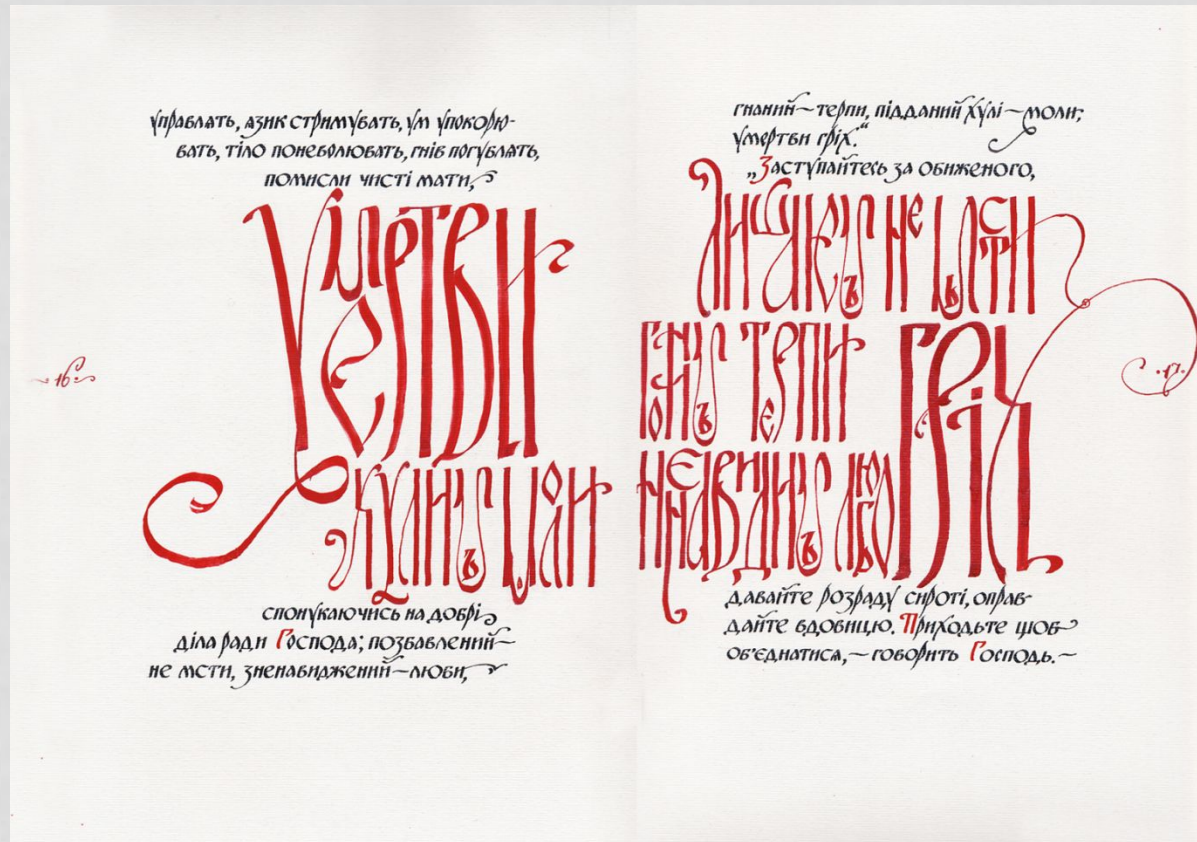 управлять, язик стримувать, ум упокорю-
вать, тіло поневолювать, гнів погублять,
помисли чисті мати,
УМЕРТВИ
ХУЛИМЪ МОЛИ
спонукаючись на добрі
діла ради Господа; позбавлений –
не мсти, зненавиджений – люби,
~16~
гнаний – терпи, підданий хулі – моли;
умертви гріх."
„Заступайтесь за обиженого,
ЛИШАЕМЪ НЕ МЬСТИ
ГОНИМЪ ТЕРПИ ГРІХ
НЕНАВИДИМЪ ЛЮБО
давайте розраду сироті, оправ-
дайте вдовицю. Приходьте щоб
об'єднатися, – говорить Господь. –
·17·